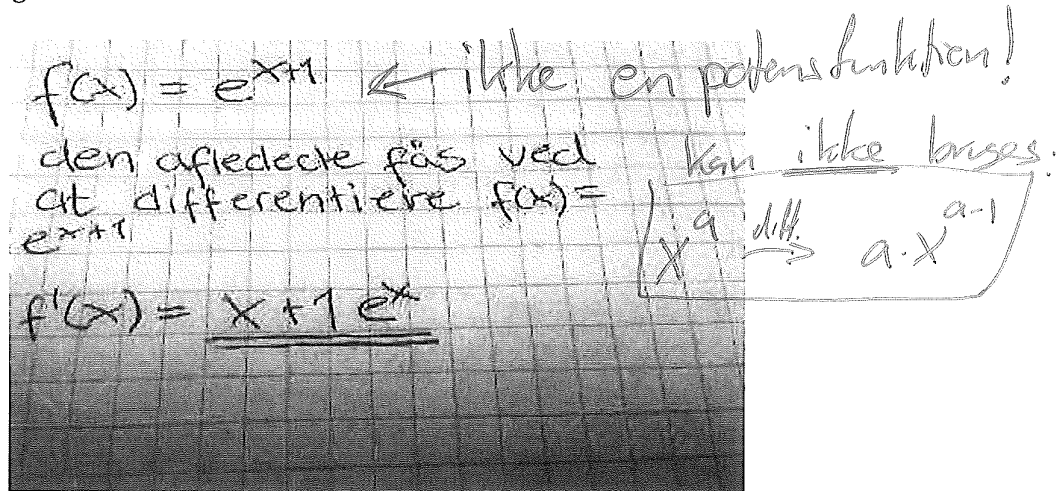 f(x) = e^{x+1} ← ikke en potensfunktion!
den afledede fås ved
at differentiere f(x) =
e^{x+1}
f'(x) = x + 1 e^x
kan ikke bruges.
x^a diff. → a · x^{a-1}